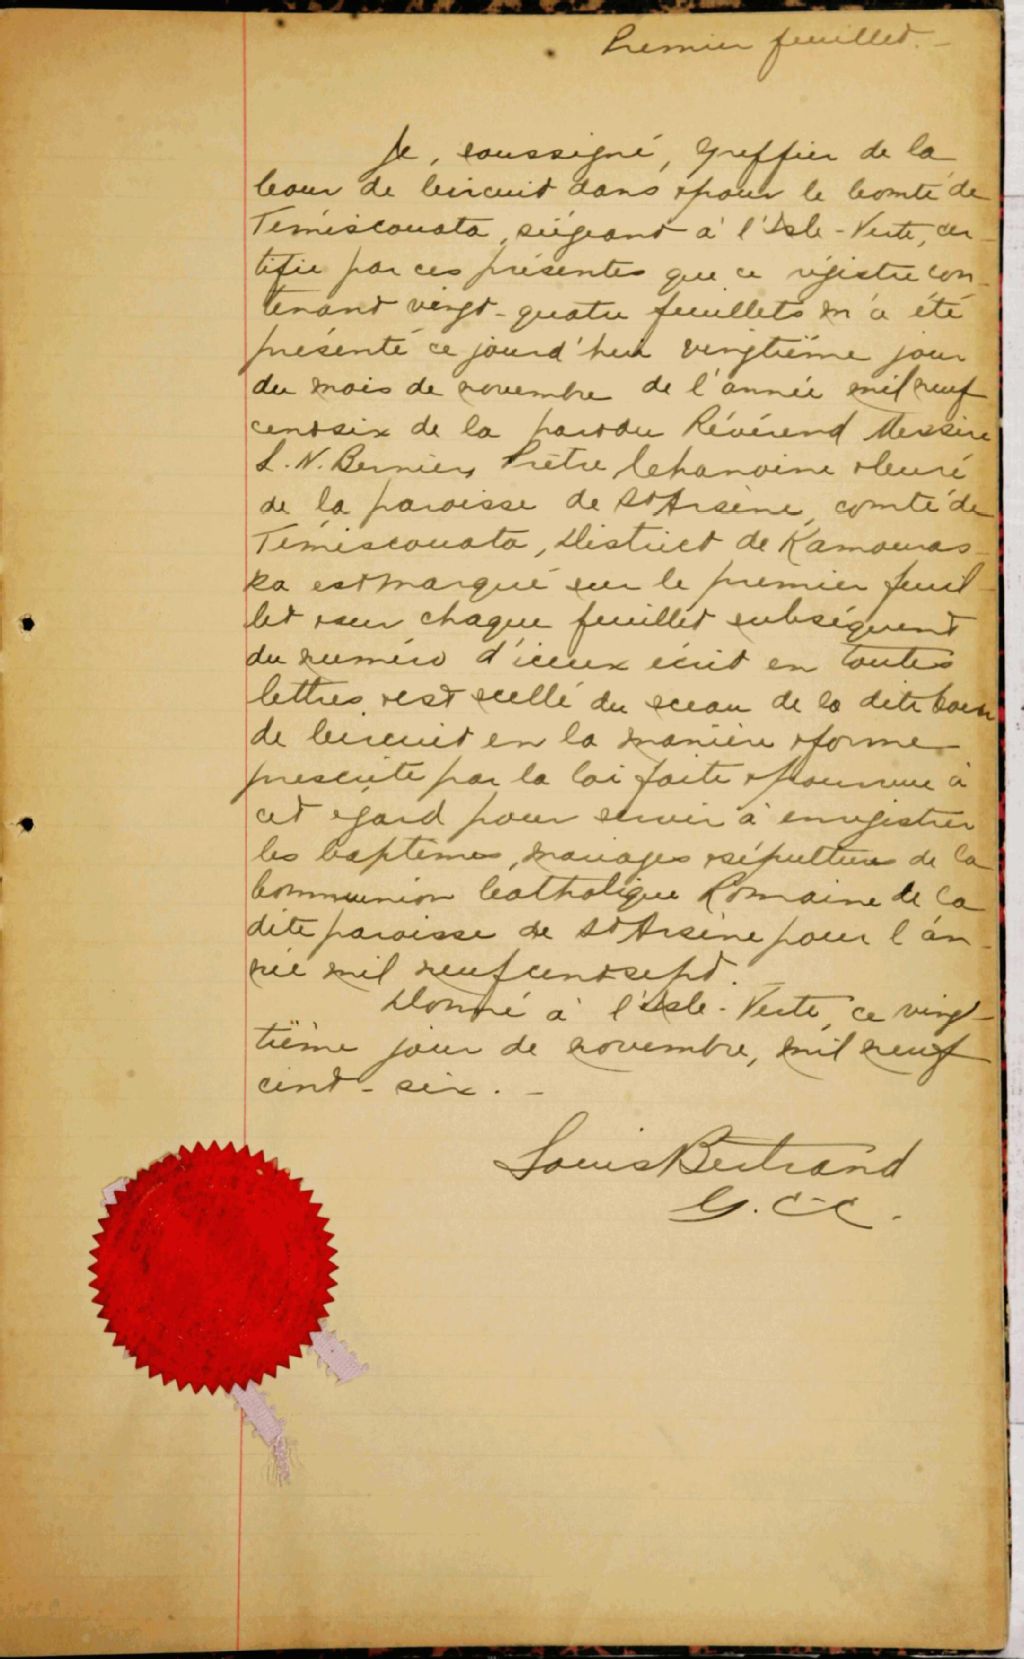 Premier feuillet. -
Je, soussigné, Greffier de la
Cour de Circuit dans & pour le Comté de
Témiscouata, siégeant à l'Isle-Verte, cer-
tifie par ces présentes que ce régistre con-
tenant vingt-quatre feuillets m'a été
présenté ce jourd'hui vingtième jour
du mois de novembre de l'année mil neuf
cent six de la part du Révérend Messire
L. N. Bernier, Prêtre Chanoine & Curé
de la paroisse de St Arsène, comté de
Témiscouata, District de Kamouras-
ka est marqué sur le premier feuil-
let & sur chaque feuillet subséquent
du numéro d'iceux écrit en toutes
lettres & est scellé du sceau de la dite Cour
de Circuit en la manière & forme
prescrite par la loi faite & pourvue à
cet égard pour servir à enregistrer
les baptêmes, mariages & sépultures de la
Communion Catholique Romaine de la
dite paroisse de St Arsène pour l'an-
née mil neuf cent sept.
Donné à l'Isle-Verte, ce ving-
tième jour de novembre, mil neuf
cent-six. -
Louis Bertrand
G. C. C.